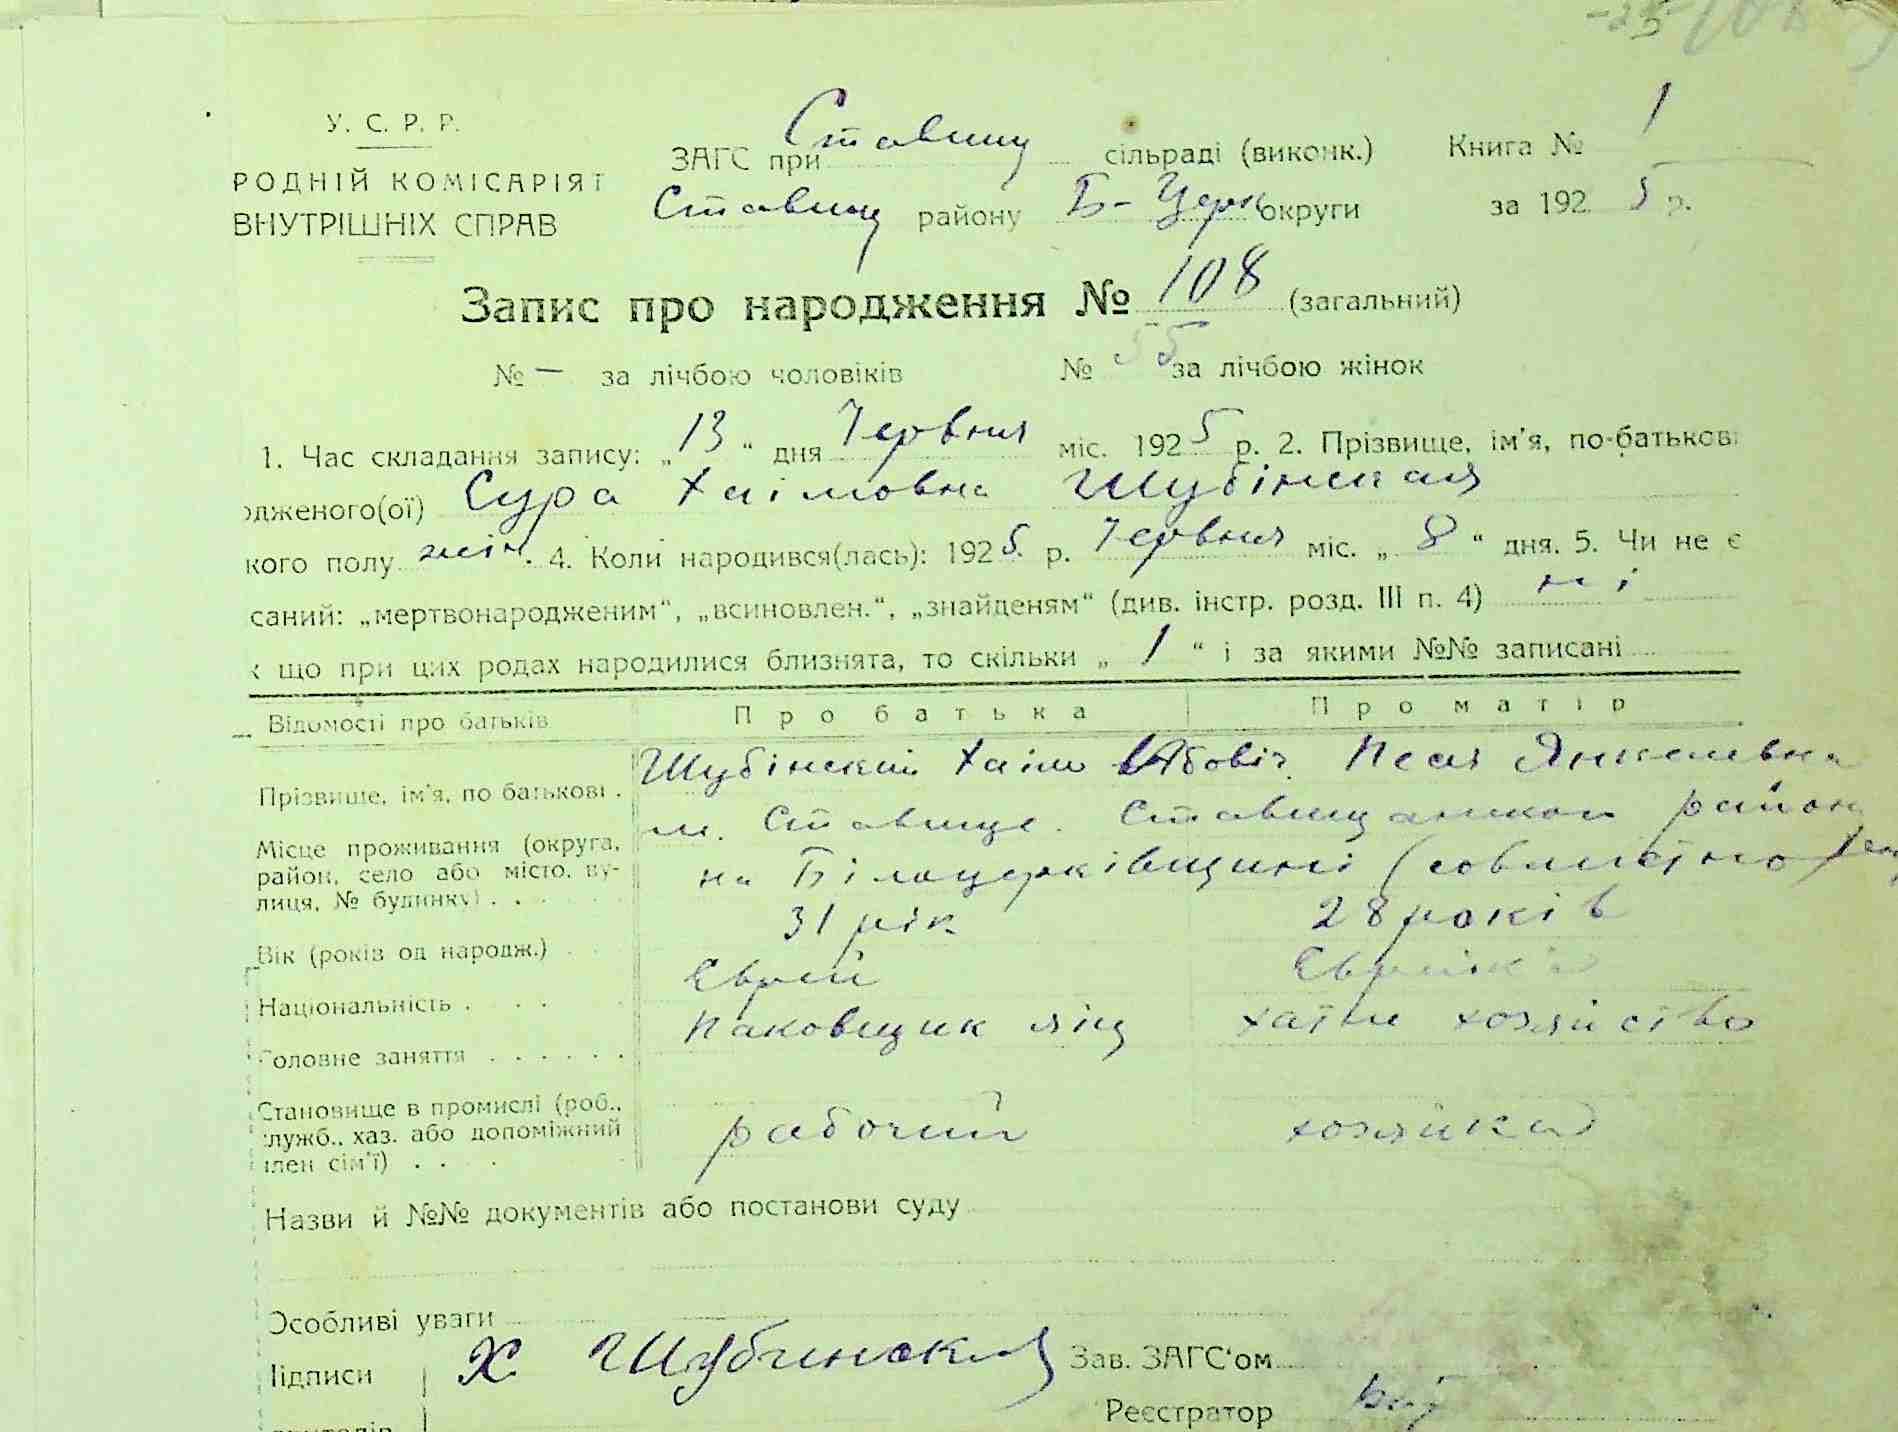 У. С. Р. Р.
РОДНІЙ КОМІСАРІЯТ
ВНУТРІШНІХ СПРАВ
ЗАГС при Ставищ сільраді (виконк.) Книга № 1
Ставищ району Б-Церк округи за 1925 р.
Запис про народження № 108 (загальний)
№ — за лічбою чоловіків № 55 за лічбою жінок
1. Час складання запису: „13“ дня Червня міс. 1925 р. 2. Прізвище, ім’я, по-батькові
дженого(ої) Сура Хаімовна Шубінская
кого полу жін. 4. Коли народився(лась): 1925 р. Червня міс. „8“ дня. 5. Чи не є
саний: „мертвонародженим“, „всиновлен.“, „знайденям“ (див. інстр. розд. III п. 4) ні
к що при цих родах народилися близнята, то скільки „1“ і за якими №№ записані
Відомості про батьків Про батька Про матір
Прізвище, ім’я, по батькові. Шубінский Хаім Абовіч. Песя Янкелевна
Місце проживання (округа, район, село або місто, вулиця, № будинку) м. Ставище. Ставищанской район
на Білоцерківщині (совместно
Вік (років од народж.) 31 рік 28 років
Національність Єврей Єврейка
Головне заняття Паковщик яиц хатне хозяйство
Становище в промислі (роб., служб., хаз. або допоміжний член сім’ї) рабочий хозяйка
Назви й №№ документів або постанови суду
Особливі уваги
Підписи Х Шубинский Зав. ЗАГС‘ом
Реєстратор